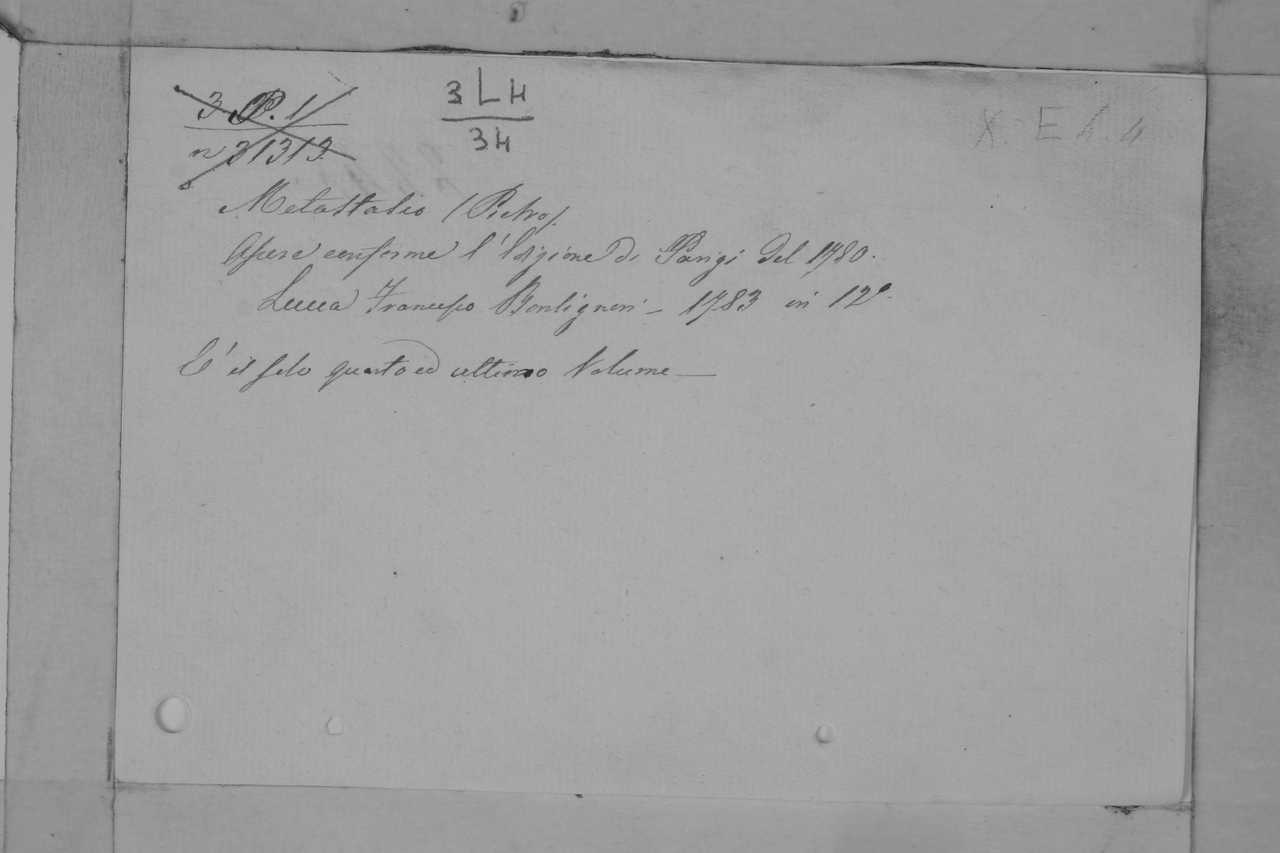 3 P. 1
n 31313
3 L H
34
X. E 4. 4
Metastasio (Pietro).
Opere conforme l'Edizione di Parigi del 1780.
Lucca Francesco Bonsignori - 1783 in 12º.
E' il solo quarto ed ultimo Volume —